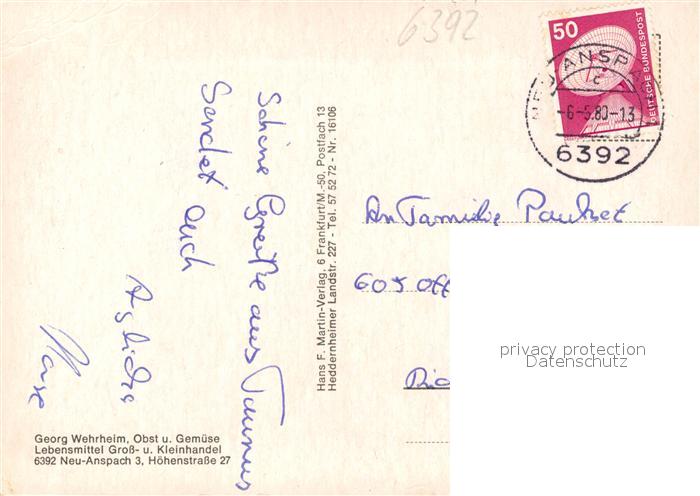 6392
50
DEUTSCHE BUNDESPOST
NEU-ANSPACH
c
-6-5.80-13
6392
Schöne Grüße aus Taunus
Sendet Euch
Hans F. Martin-Verlag, 6 Frankfurt/M.-50, Postfach 13
Heddernheimer Landstr. 227 - Tel. 57 52 72 - Nr. 16106
An Familie
605 Off
privacy protection
Datenschutz
Georg Wehrheim, Obst u. Gemüse
Lebensmittel Groß- u. Kleinhandel
6392 Neu-Anspach 3, Höhenstraße 27